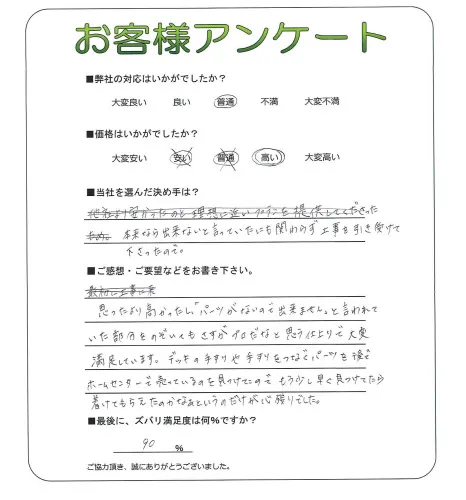 お客様アンケート
■弊社の対応はいかがでしたか？
大変良い 良い 普通 不満 大変不満
■価格はいかがでしたか？
大変安い 安い 普通 高い 大変高い
■当社を選んだ決め手は？
他社より安かったのと理想に近いプランを提供してくださった
ため。 本来なら出来ないと言っていたにも関わらず工事を引き受けて
下さったので。
■ご感想・ご要望などをお書き下さい。
最初に工事に来
思ったより高かったし「パーツがないので出来ません。」と言われて
いた部分をのぞいてもさすがプロだなと思う仕上りで大変
満足しています。デッキの手すりや手すりをつなぐパーツを後で
ホームセンターで売っているのを見つけたのでもう少し早く見つけてたら
着けてもらえたのかなぁというのだけが心残りでした。
■最後に、ズバリ満足度は何％ですか？
90 ％
ご協力頂き、誠にありがとうございました。